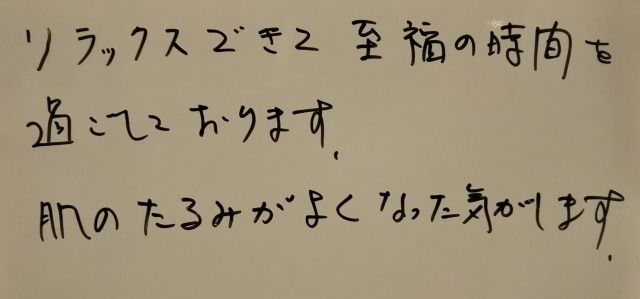 リラックスできて至福の時間を
過ごしております.
肌のたるみがよくなった気がします.